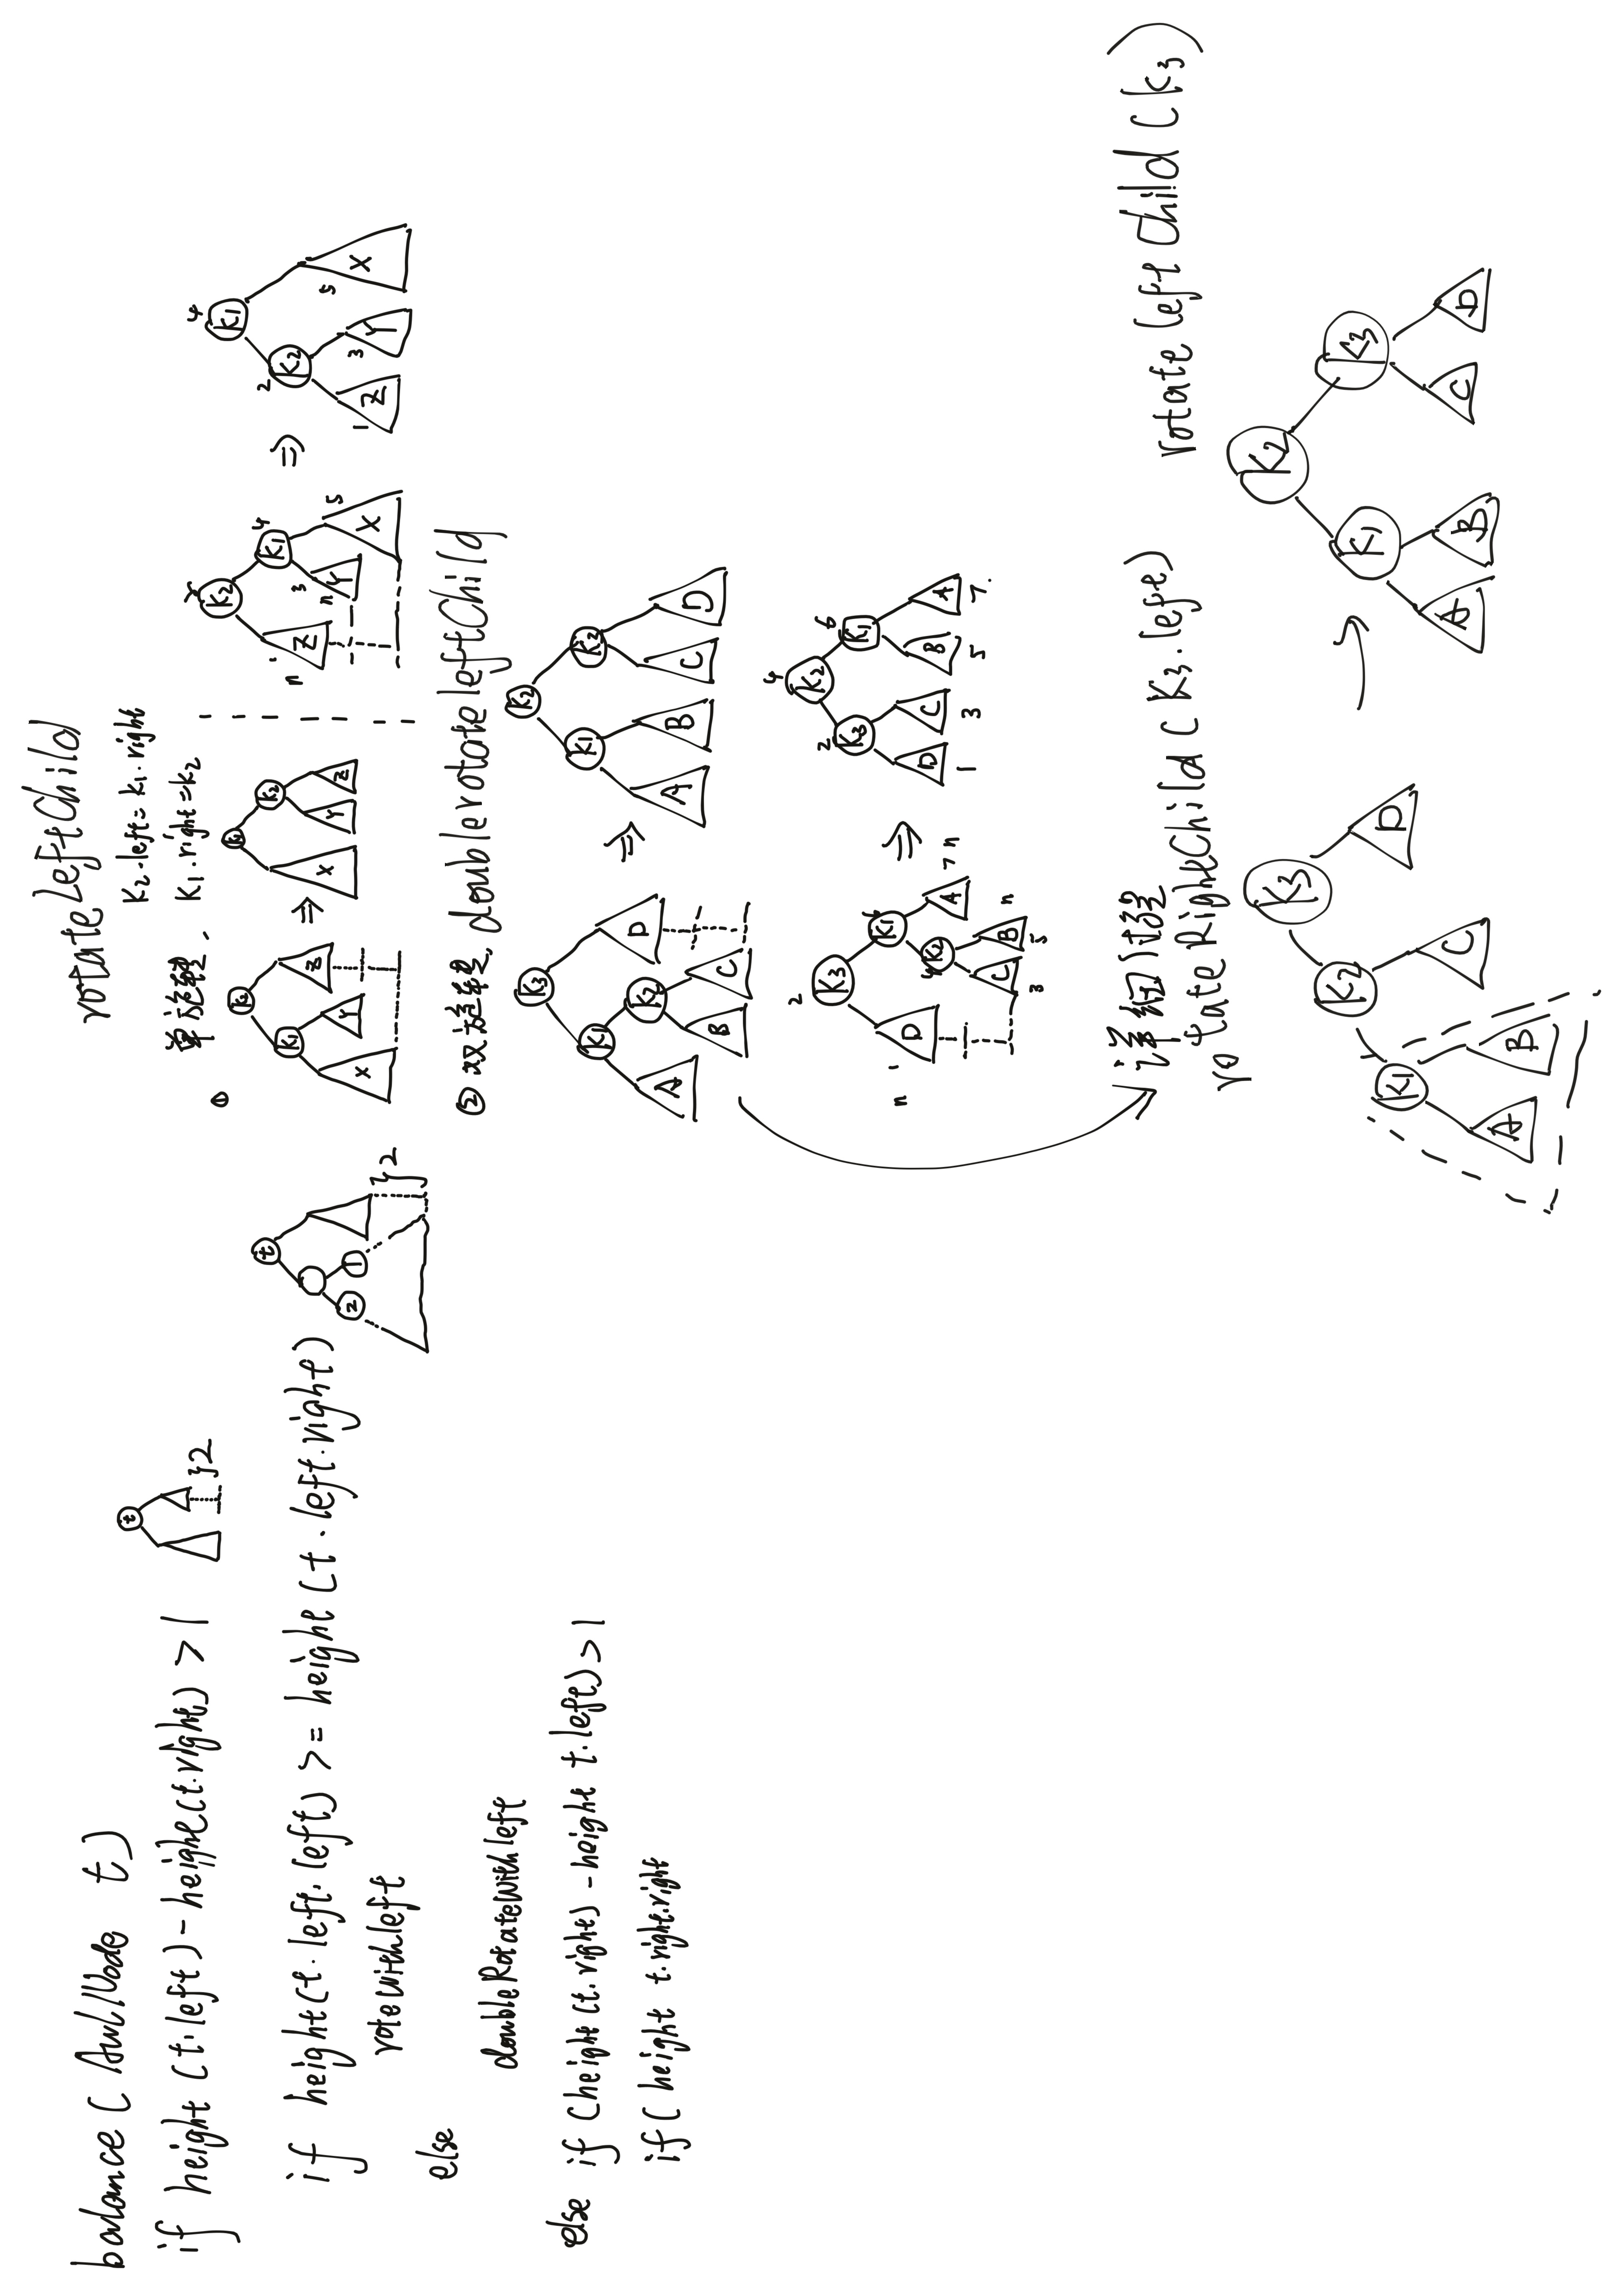 balance ( AvlNode t )
if height (t.left) - height(t.right) > 1
t
}2
if height(t.left.left) >= height (t.left.right)
rotewithleft
else
doubleRotatewithleft
t
2
1
}2
else if (height (t.right) - height t.left) > 1
if ( height t.right.right
rotateLeftChild
K2.left = k1.right
① 单旋转. K1.right = k2
K2
K1
X
Y
Z
⇒
K1
K2
X
Y
Z
K2
K1
4
1
n
Z
3
n
Y
5
X
⇒
4
K1
2
K2
1
Z
3
Y
5
X
② 双旋转, doublerotateleftChild
K3
K1
K2
A
B
C
D
⇒
K2
K1
K3
A
B
C
D
2
K3
n
1
D
K1
6
4
K2
A
7 n
C
B
n
3
5
⇒
4
K2
2
K3
6
K1
D
C
B
A
1
3
5
7.
详细过程
rotateRightChild ( K3.left)
rotateleftChild ( k3 )
K3
K2
K1
D
C
A
B
→
K2
K1
K3
A
B
C
D